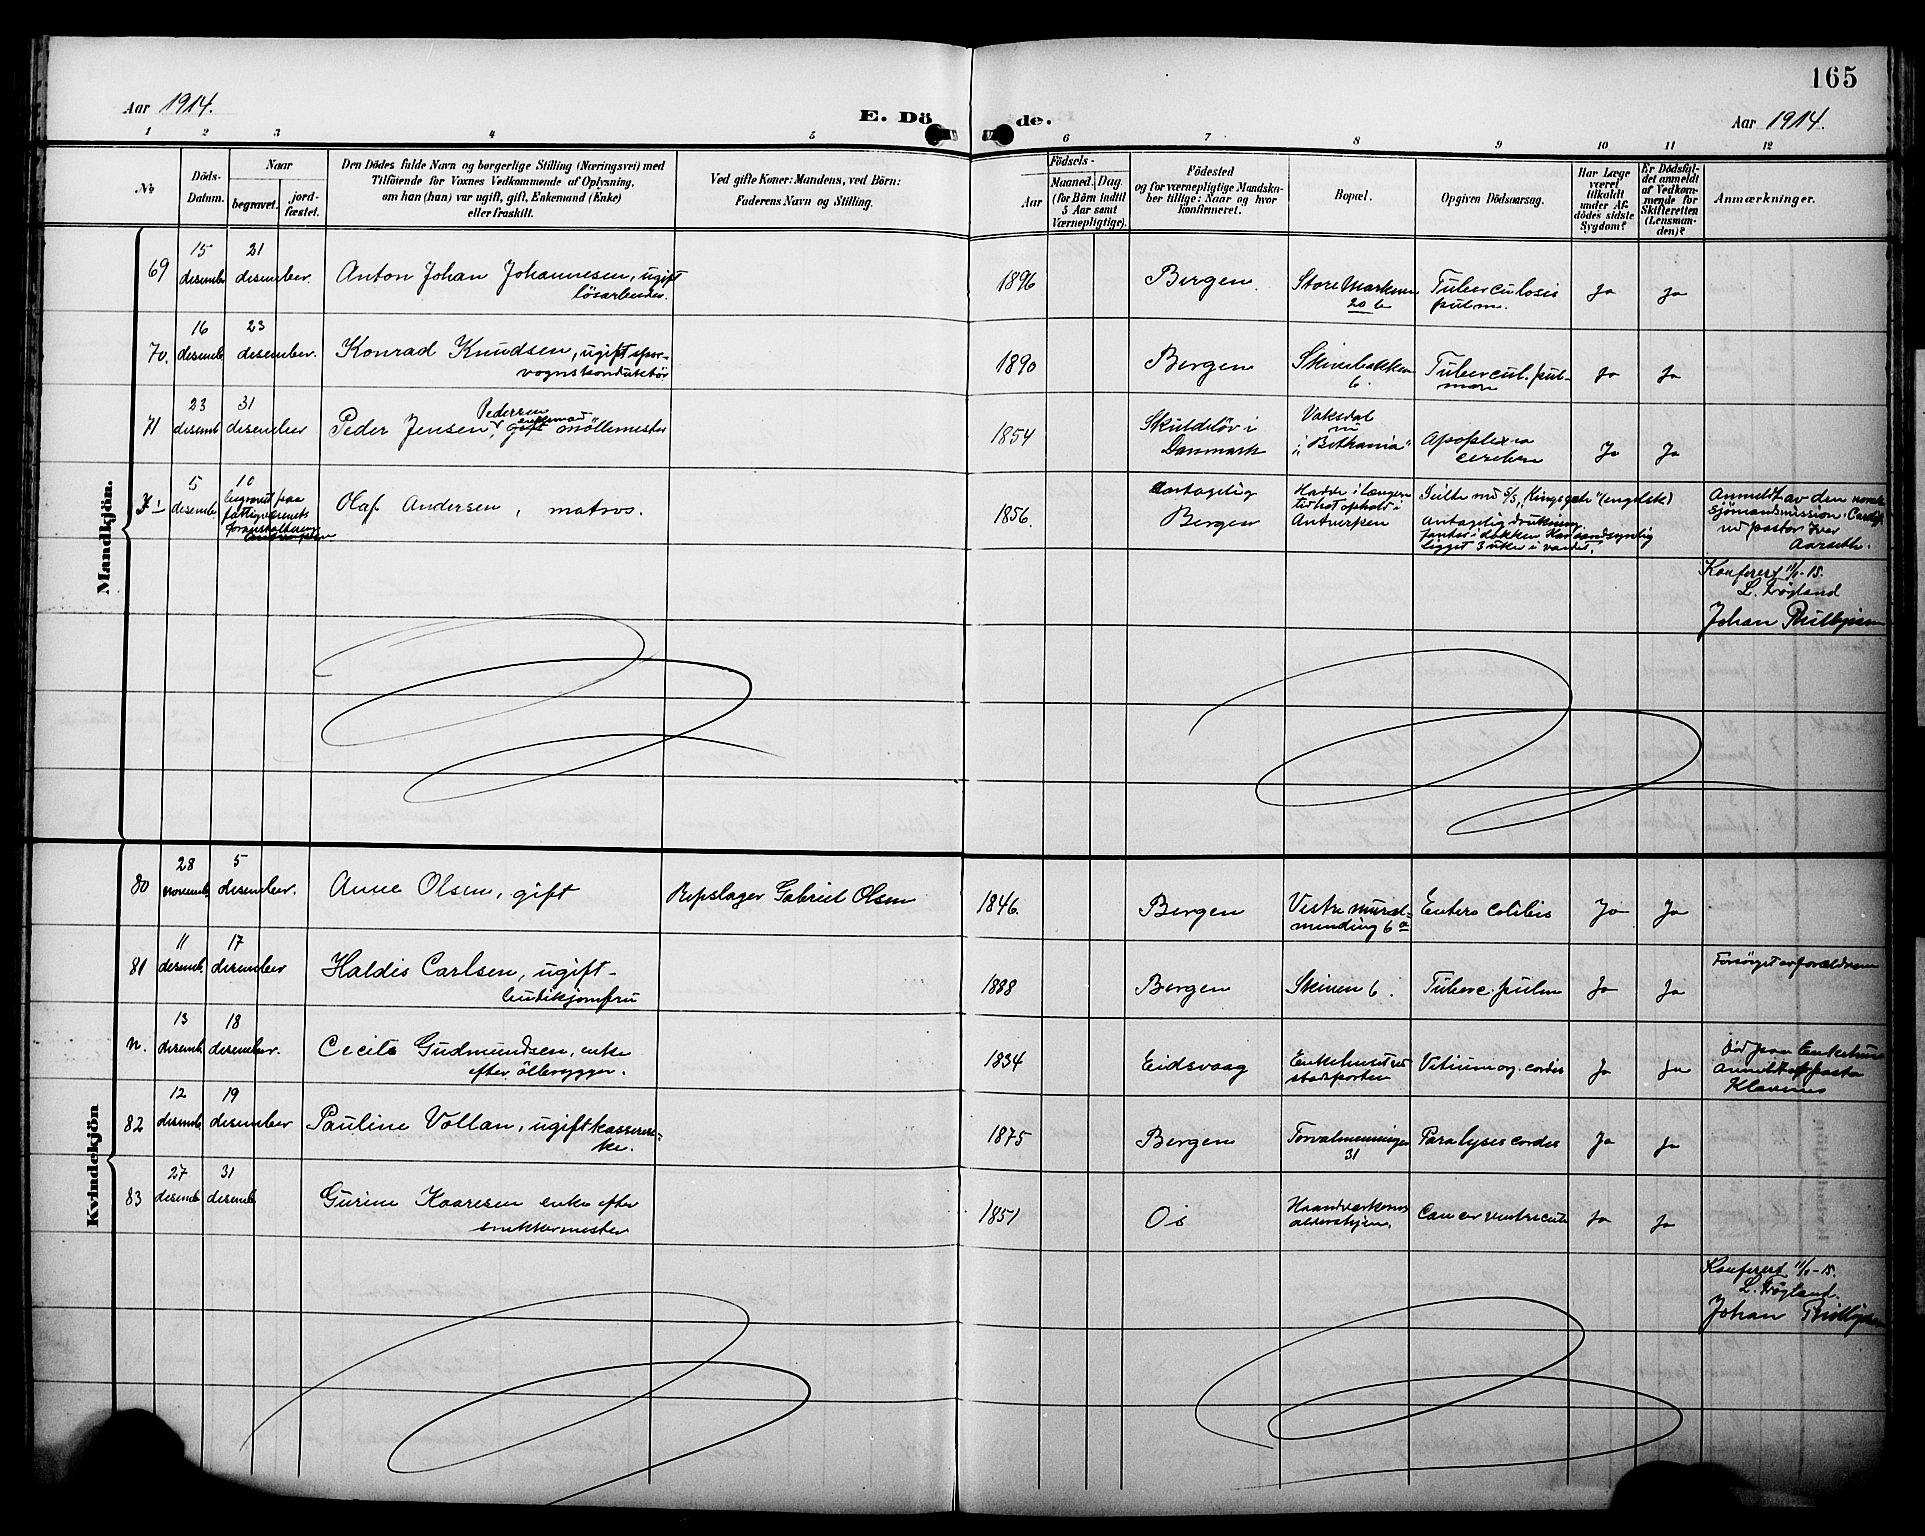 165
Aar 1914.
E. Dö de.
Aar 1914.
1 2 3 4 5 6 7 8 9 10 11 12
No
Döds-Datum.
Naar
begravet.
jord-fæstet.
Den Dödes fulde Navn og borgerlige Stilling (Næringsvei) med
Tilföiende for Voxnes Vedkommende af Oplysning,
om han (hun) var ugift, gift, Enkemand (Enke)
eller fraskilt.
Ved gifte Koner: Mandens, ved Börn:
Faderens Navn og Stilling.
Födsels-
Aar
Maaned. Dag.
(for Börn indtil
5 Aar samt
Værnepligtige).
Födested
og for værnepligtige Mandska-
ber tillige: Naar og hvor
konfirmeret.
Bopæl.
Opgiven Dödsaarsag.
Har Læge
været
tilkaldt
under Af-
dödes sidste
Sygdom?
Er Dödsfal-
det anmeldt
af Vedkom-
mende for
Skifteretten
(Lensman-
den)?
Anmærkninger.
Mandkjön.
69 15 desemb 21 desember. Anton Johan Johannesen, ugift
løsarbeider. 1896 Bergen. Store Markvei 20 b Tuberculosis
pulm. Ja Ja
70. 16 desemb 23 desember. Konrad Knudsen, ugift spor-
vognskonduktör 1890 Bergen Skivebakken 6. Tubercul. pul-
mon Ja Ja
71 23 desemb 31 desember Peder Jensen Pedersen, gift enkemand möllemester
1854 Skuldelöv i
Danmark Vaksdal
nu
i "Bethania" Apoplexia
cerebri Ja Ja
5 desemb 10
begravet fra
fattigvæsenets
foranstaltning
Olaf Andersen, matros. 1856. antagelig
Bergen Hadde i længere
tid hat ophold i
Antwerpen Seilte med S/S "Kingsgate" (engelsk)
Antagelig drukning.
fundet i dokken Har sandsynlig
ligget 3 uker i vandet. Anmeldt av den norske
sjömandsmission, Cardiff
ved pastor Iver
Aarseth.
Konferert 11/1-15.
L. Frøyland
Johan
Kvindekjön
80 28 novemb 5 desember. Anne Olsen, gift Repslager Gabriel Olsen 1846. Bergen Vestre mural-
mending 6 a Entero colitis Ja Ja
81 11 desemb. 17 desember Haldis Carlsen, ugift
butikjomfru 1888 Bergen Skiven 6. Tuberc. pulm Ja Ja Forsörget av forældrene
n. 13 desemb. 18 desember. Cecilie Gudmundsen, enke
efter ölbrygger. 1834 Eidsvaag Enkehuset ved
stadsporten Vitium org. cordis Ja Ja Död paa Enkehuset
Anmeldt af pastor
Klaveness
82 12 desemb. 19 desember Pauline Vollan, ugift kasserer-
ske. 1875 Bergen Torvalmenningen
31 Paralysis cordis Ja Ja
83 27 desemb. 31 desemb Gurine Kaaresen enke efter
snekkermester 1851 Os Haandverkernes
aldershjem. Cancer ventriculi Ja Ja
Konferert 11/1-15.
L. Frøyland.
Johan